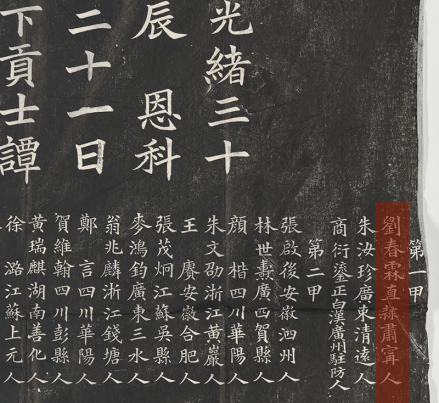 光緒三十
辰　恩科
二十一日
下貢士譚
第一甲
劉春霖直隸肅甯人
朱汝珍廣東清遠人
商衍鎏正白漢廣州駐防人
第二甲
張啟後安徽泗州人
林世燾廣西賀縣人
顏　楷四川華陽人
朱文劭浙江黃巖人
王　賡安徽合肥人
張茂炯江蘇吳縣人
麥鴻鈞廣東三水人
翁兆麟浙江錢塘人
鄭　言四川華陽人
賀維翰四川彭縣人
黃瑞麒湖南善化人
徐　潞江蘇上元人